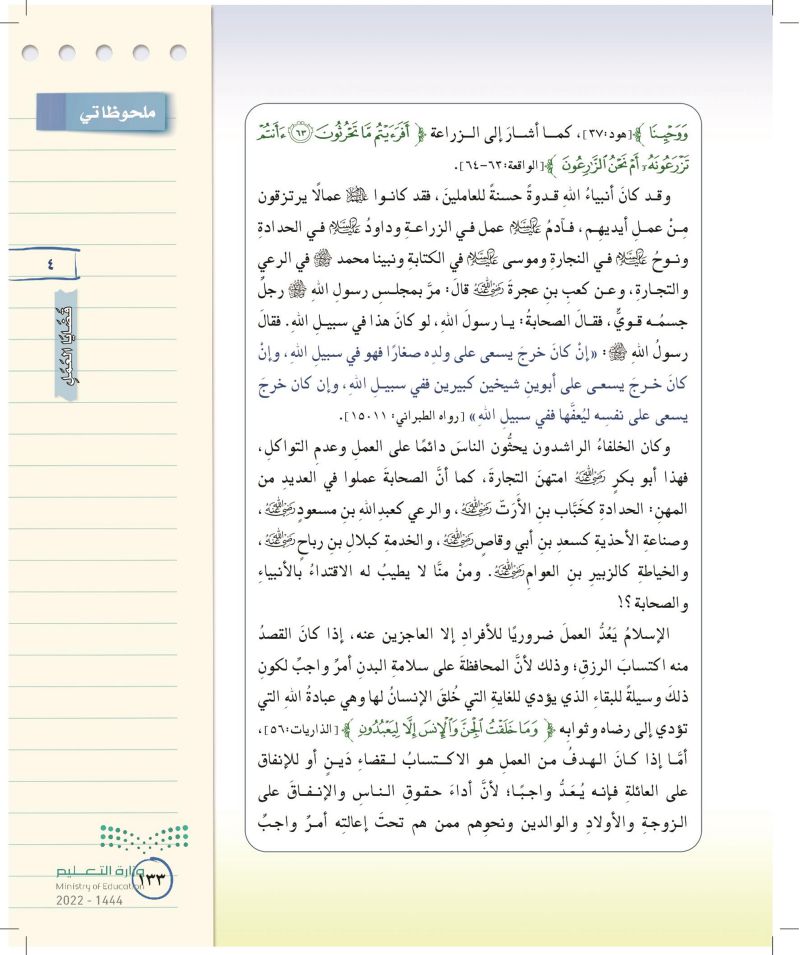 ملحوظاتي
٤
قضايا العمل
وَوَحْيِنَا ﴾[هود:٣٧]، كمـا أشـارَ إلى الـزراعة ﴿ أَفَرَءَيْتُم مَّا تَحْرُثُونَ ٦٣ ءَأَنتُمْ
تَزْرَعُونَهُۥٓ أَمْ نَحْنُ ٱلزَّٰرِعُونَ ﴾[الواقعة:٦٣-٦٤].
وقـد كـانَ أنبيـاءُ اللهِ قـدوةً حسنةً للعاملين، فقد كانـوا ﷺ عمالًا يرتزقون
مِـنْ عمـلِ أيديهـم، فـآدمُ عليه السلام عمل فـي الزراعـةِ وداودُ عليه السلام فـي الحدادةِ
ونـوحُ عليه السلام فـي النجارةِ وموسى عليه السلام في الكتابةِ ونبينا محمد ﷺ في الرعيِ
والتجـارةِ، وعـن كعبِ بنِ عجرةَ رضي الله عنه قالَ: مرَّ بمجلـسِ رسولِ اللهِ ﷺ رجلٌ
جسمُـه قـويٌّ، فقـالَ الصحابةُ: يـا رسولَ اللهِ، لو كانَ هذا في سبيـلِ اللهِ. فقالَ
رسولُ اللهِ ﷺ: «إنْ كـانَ خرجَ يسعى على ولدِه صغارًا فهو في سبيلِ اللهِ، وإنْ
كانَ خـرجَ يسعـى على أبوينِ شيخينِ كبيرينِ ففي سبيـلِ اللهِ، وإن كان خرجَ
يسعى على نفسِه ليُعفَّها ففي سبيلِ اللهِ» [رواه الطبراني: ١٥٠١١].
وكان الخلفاءُ الراشدون يحثُّون الناسَ دائمًا على العملِ وعدمِ التواكلِ،
فهذا أبو بكرٍ رضي الله عنه امتهنَ التجارةَ، كما أنَّ الصحابةَ عملوا في العديدِ من
المهنِ: الحدادةِ كخَبَّاب بنِ الأَرَتّ رضي الله عنه، والرعي كعبدِاللهِ بنِ مسعودٍ رضي الله عنه،
وصناعةِ الأحذيةِ كسعدِ بنِ أبي وقاصٍ رضي الله عنه، والخدمةِ كبلالِ بنِ رباحٍ رضي الله عنه،
والخياطةِ كالزبيرِ بنِ العوامِ رضي الله عنه. ومنْ منَّا لا يطيبُ له الاقتداءُ بالأنبياءِ
والصحابة؟!
الإسلامُ يَعُدُّ العملَ ضروريًا للأفرادِ إلا العاجزين عنه، إذا كانَ القصدُ
منه اكتسابَ الرزقِ؛ وذلك لأنَّ المحافظةَ على سلامةِ البدنِ أمرٌ واجبٌ لكونِ
ذلكَ وسيلةً للبقاءِ الذي يؤدي للغايةِ التي خُلقَ الإنسانُ لها وهي عبادةُ اللهِ التي
تؤدي إلى رضاه وثوابِه ﴿ وَمَا خَلَقْتُ ٱلْجِنَّ وَٱلْإِنسَ إِلَّا لِيَعْبُدُونِ ﴾[الذاريات:٥٦]،
أمَّـا إذا كـانَ الـهدفُ مـن العمـلِ هـو الاكـتسابُ لـقضاءِ دَيـنٍ أو للإنفاقِ
على العائلةِ فإنـه يُـعَـدُّ واجـبًـا؛ لأنَّ أداءَ حقـوقِ النـاسِ والإنـفـاقَ علـى
الـزوجـةِ والأولادِ والوالدينِ ونحوِهم ممن هم تحتَ إعالتِه أمـرٌ واجـبٌ
وزارة التعليم
Ministry of Education
١٣٣
2022 - 1444